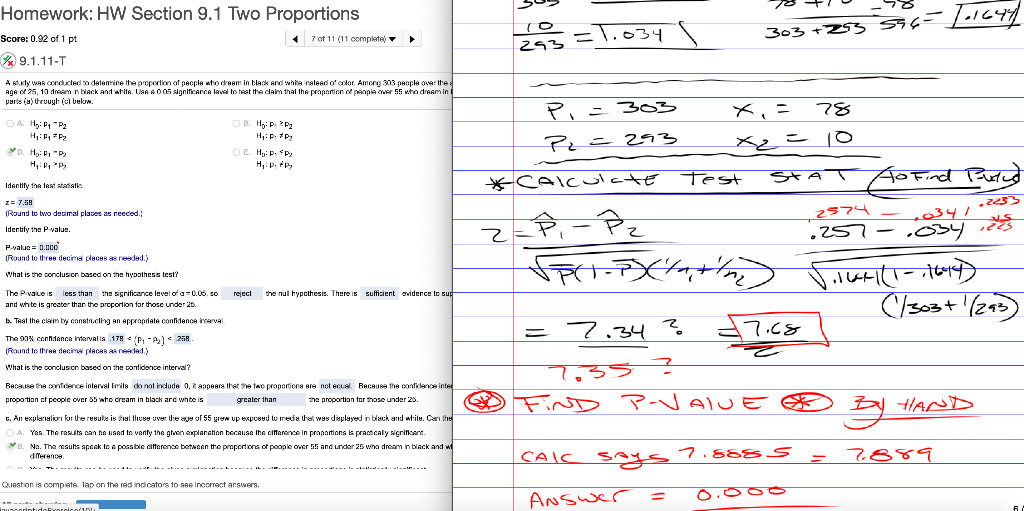 Homework: HW Section 9.1 Two Proportions
Score: 0.92 of 1 pt
7 of 11 (11 complete)
9.1.11-T
A study was conducted to determine the proportion of people who dream in black and white instead of color. Among 303 people over the a
age of 25, 10 dream in black and white. Use a 0.05 significance level to test the claim that the proportion of people over 55 who dream in
parts (a) through (c) below.
A. H₀: p₁ = p₂
H₁: p₁ ≠ p₂
B. H₀: p₁ ≥ p₂
H₁: p₁ ≠ p₂
D. H₀: p₁ = p₂
H₁: p₁ > p₂
E. H₀: p₁ ≤ p₂
H₁: p₁ ≠ p₂
Identify the test statistic.
z = 7.68
(Round to two decimal places as needed.)
Identify the P-value.
P-value = 0.000
(Round to three decimal places as needed.)
What is the conclusion based on the hypothesis test?
The P-value is less than the significance level of α = 0.05, so reject the null hypothesis. There is sufficient evidence to sup
and white is greater than the proportion for those under 25.
b. Test the claim by constructing an appropriate confidence interval.
The 90% confidence interval is .178 < (p₁ - p₂) < .268.
(Round to three decimal places as needed.)
What is the conclusion based on the confidence interval?
Because the confidence interval limits do not include 0, it appears that the two proportions are not equal. Because the confidence inte
proportion of people over 55 who dream in black and white is greater than the proportion for those under 25.
c. An explanation for the results is that those over the age of 55 grew up exposed to media that was displayed in black and white. Can the
A. Yes. The results can be used to verify the given explanation because the difference in proportions is practically significant.
B. No. The results speak to a possible difference between the proportions of people over 55 and under 25 who dream in black and wl
difference.
Question is complete. Tap on the red indicators to see incorrect answers.
10/293 = .034
303 + 293 596 = .1644
P₁ = 303 x₁ = 78
P₂ = 293 x₂ = 10
* Calculate Test Stat (to Find P-value
.2574 - .0341 .2233
vs
.223
z = p̂₁ - p̂₂ .257 - .034
√P̄(1-P̄)(1/n₁+1/n₂) √.1644(1-.1644)
(1/303+1/293)
= 7.34 ? = 7.68
7.35 ?
* FIND P-VALUE * By HAND
CALC SAYS 7.6885 = 7.689
ANSWER = 0.000
6/